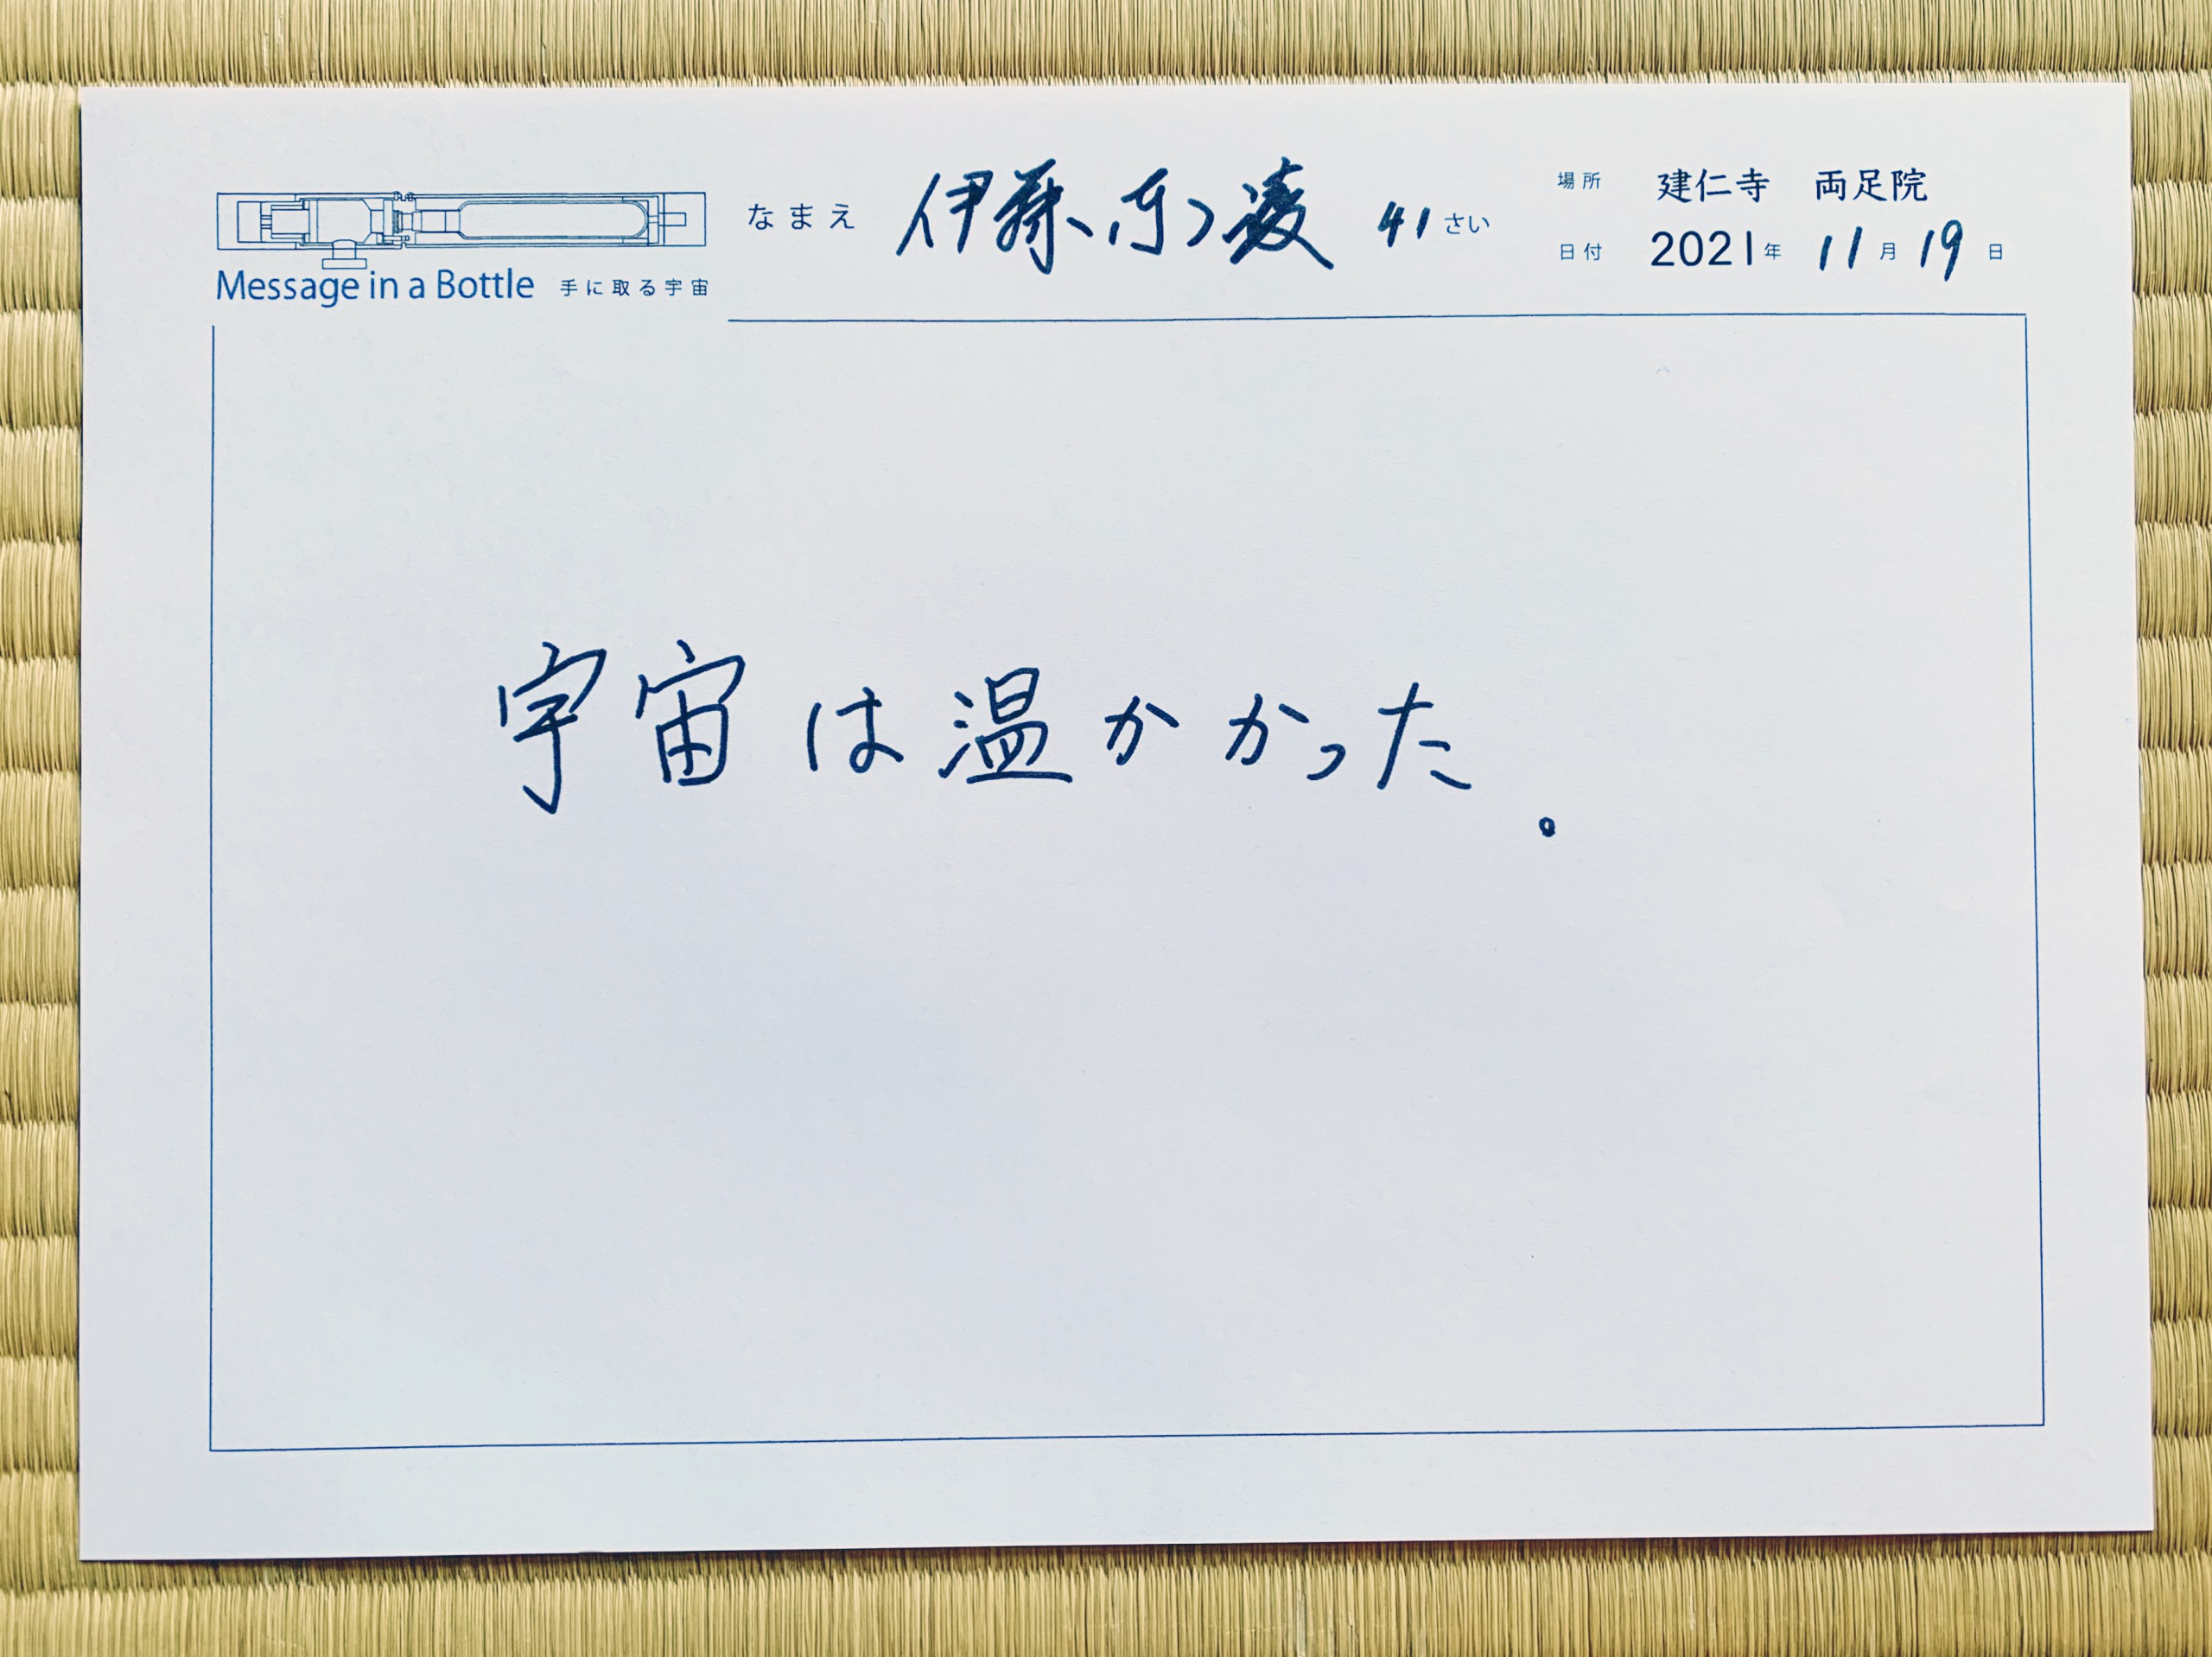 なまえ 伊藤 東凌 41さい
場所 建仁寺 両足院
日付 2021年 11月 19日
Message in a Bottle 手に取る宇宙
宇宙は温かかった。